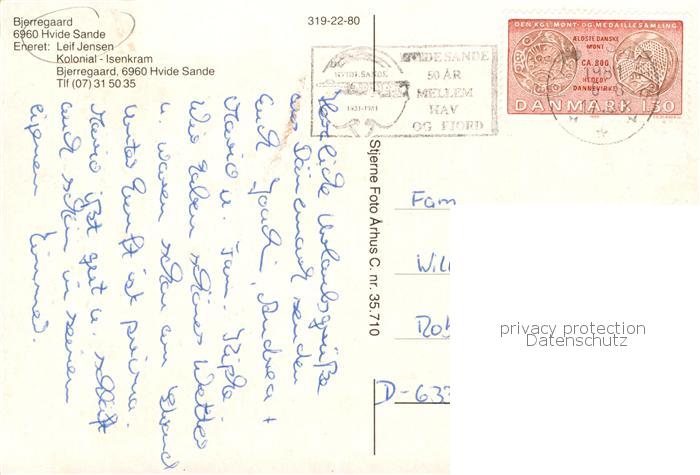 Bjerregaard
6960 Hvide Sande
Eneret: Leif Jensen
Kolonial - Isenkram
Bjerregaard, 6960 Hvide Sande
Tlf (07) 31 50 35
319-22-80
HVIDE SANDE
1931-1981
HVIDE SANDE
50 ÅR
MELLEM
HAV
OG FJORD
DEN KGL. MØNT- OG MEDAILLESAMLING
ÆLDSTE DANSKE
MØNT
CA. 800
HEDEBY
DANNEVIRKE
DANMARK 1.30
Stjerne Foto Århus C. nr. 35.710
Herzliche Urlaubsgrüße
aus Dänemark senden
Euch Joachi, Andrea +
Mario u. Fam.
Wir haben schönes Wetter
u. waren schon am Strand
Unterkunft ist prima.
Mario ißt gut u. schläft
auch schön in seinem
eigenen Zimmer.
Fam
Will
Rob
D-633
privacy protection
Datenschutz